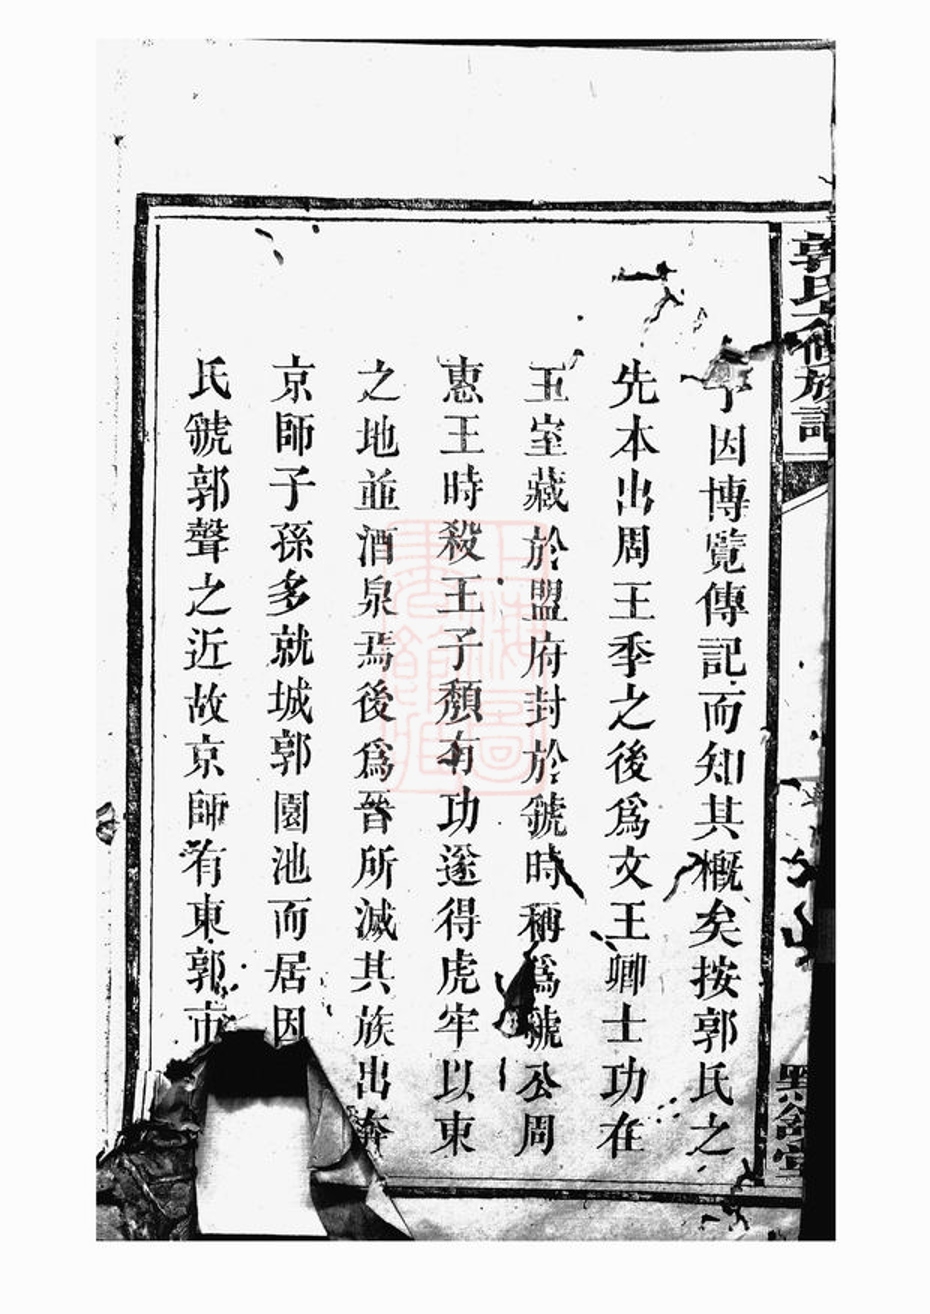 郭氏六修族譜
因博覽傳記而知其概矣按郭氏之
先本出周王季之後爲文王卿士功在
王室藏於盟府封於虢時稱爲虢公周
惠王時殺王子頹有功遂得虎牢以東
之地並酒泉焉後爲晉所滅其族出奔
京師子孫多就城郭園池而居因
氏虢郭聲之近故京師有東郭市